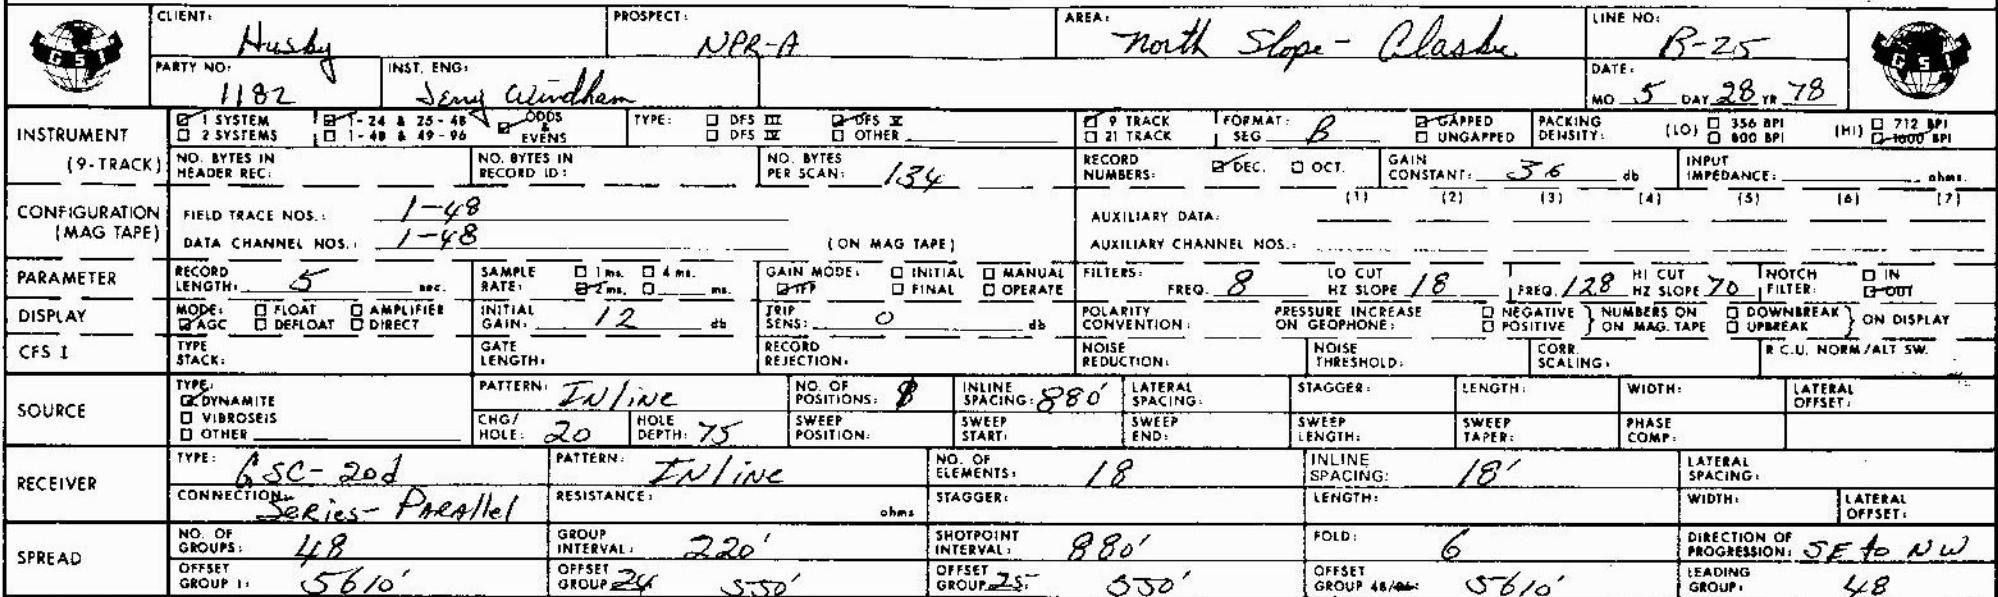 CLIENT: Husby PROSPECT: NPR-A AREA: North Slope - Alaska LINE NO: B-25
GSI GSI
PARTY NO: 1182 INST. ENG: Jerry Windham DATE: MO 5 DAY 28 YR 78
INSTRUMENT (9-TRACK)
☑ 1 SYSTEM ☑ 1-24 & 25-48 ☑ ODDS & EVENS TYPE: ☐ DFS III ☑ DFS V ☑ 9 TRACK FORMAT: SEG B ☑ GAPPED PACKING DENSITY: (LO) ☐ 356 BPI (HI) ☐ 712 BPI
☐ 2 SYSTEMS ☐ 1-48 & 49-96 ☐ DFS IV ☐ OTHER ☐ 21 TRACK ☐ UNGAPPED ☐ 800 BPI ☑ 1600 BPI
NO. BYTES IN HEADER REC: NO. BYTES IN RECORD ID: NO. BYTES PER SCAN: 134 RECORD NUMBERS: ☑ DEC. ☐ OCT. GAIN CONSTANT: 36 db INPUT IMPEDANCE: ohms.
CONFIGURATION (MAG TAPE)
FIELD TRACE NOS.: 1-48 AUXILIARY DATA: (1) (2) (3) (4) (5) (6) (7)
DATA CHANNEL NOS.: 1-48 (ON MAG TAPE) AUXILIARY CHANNEL NOS.:
PARAMETER RECORD LENGTH: 5 sec. SAMPLE RATE: ☐ 1 ms. ☐ 4 ms. ☑ 2 ms. ☐ ms. GAIN MODE: ☐ INITIAL ☐ MANUAL ☑ IFP ☐ FINAL ☐ OPERATE FILTERS: FREQ. 8 LO CUT HZ SLOPE 18 FREQ. 128 HI CUT HZ SLOPE 70 NOTCH FILTER: ☐ IN ☑ OUT
DISPLAY MODE: ☐ FLOAT ☐ AMPLIFIER ☑ AGC ☐ DEFLOAT ☐ DIRECT INITIAL GAIN: 12 db TRIP SENS: 0 db POLARITY CONVENTION: PRESSURE INCREASE ON GEOPHONE: ☐ NEGATIVE ☐ POSITIVE } NUMBERS ON ON MAG. TAPE ☐ DOWNBREAK ☐ UPBREAK } ON DISPLAY
CFS I TYPE STACK: GATE LENGTH: RECORD REJECTION: NOISE REDUCTION: NOISE THRESHOLD: CORR. SCALING: R.C.U. NORM/ALT SW.
SOURCE TYPE: ☑ DYNAMITE ☐ VIBROSEIS ☐ OTHER
PATTERN: INline NO. OF POSITIONS: INLINE SPACING: 880' LATERAL SPACING: STAGGER: LENGTH: WIDTH: LATERAL OFFSET:
CHG/HOLE: 20 HOLE DEPTH: 75 SWEEP POSITION: SWEEP START: SWEEP END: SWEEP LENGTH: SWEEP TAPER: PHASE COMP:
RECEIVER TYPE: GSC-20d PATTERN: INline NO. OF ELEMENTS: 18 INLINE SPACING: 18' LATERAL SPACING:
CONNECTION: Series-Parallel RESISTANCE: ohms STAGGER: LENGTH: WIDTH: LATERAL OFFSET:
SPREAD NO. OF GROUPS: 48 GROUP INTERVAL: 220' SHOTPOINT INTERVAL: 880' FOLD: 6 DIRECTION OF PROGRESSION: SE to NW
OFFSET GROUP 1: 5610' OFFSET GROUP 24 550' OFFSET GROUP 25 550' OFFSET GROUP 48/96: 5610' LEADING GROUP: 48